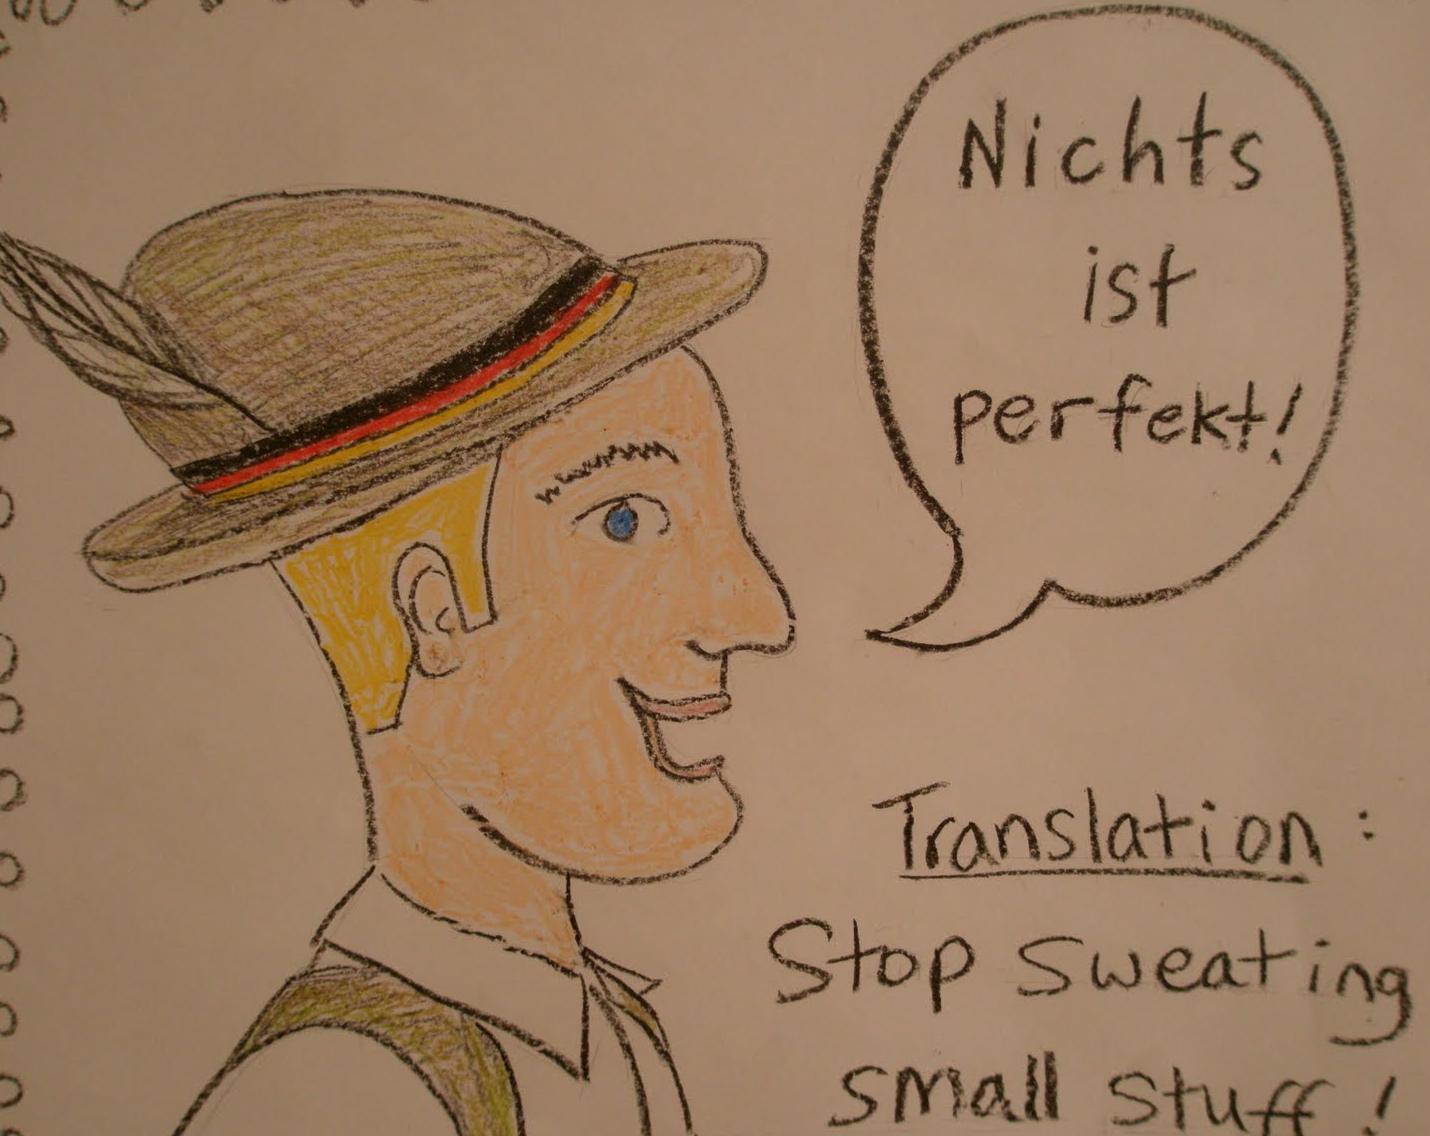 Nichts
ist
perfekt!
Translation:
Stop sweating
small stuff!